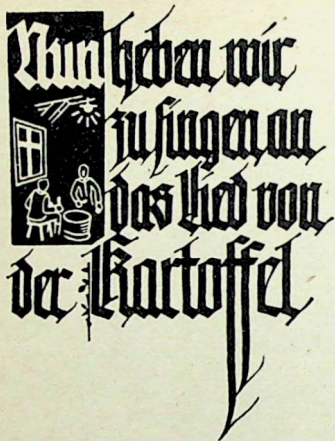 Nun heben wir
zu singen an
das Lied von
der Kartoffel